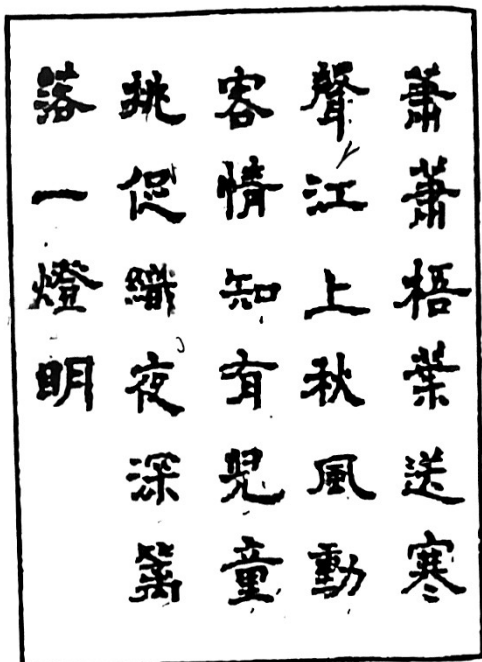 蕭蕭梧葉送寒
聲江上秋風動
客情知有兒童
挑促織夜深籬
落一燈明